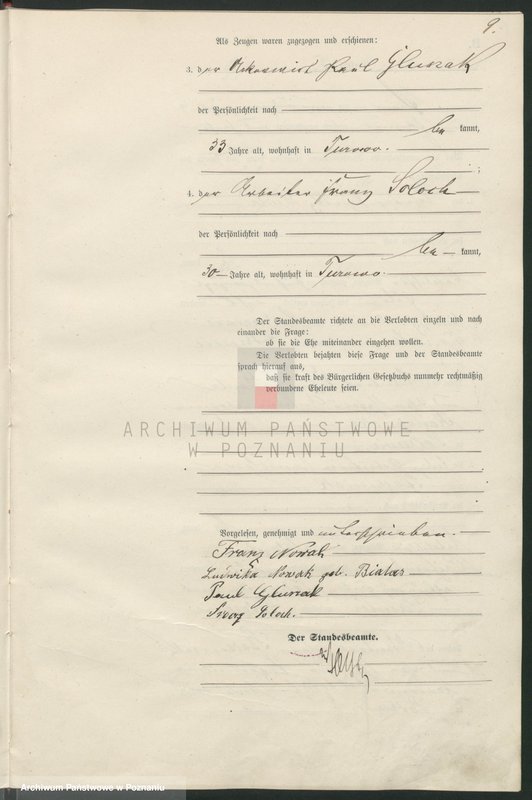 9.
Als Zeugen waren zugezogen und erschienen:
3. der Paul Gluszak
der Persönlichkeit nach
be kannt,
33 Jahre alt, wohnhaft in Turowo.
;
4. der Arbeiter Franz Soloch
der Persönlichkeit nach
be kannt,
30 Jahre alt, wohnhaft in Turowo.
Der Standesbeamte richtete an die Verlobten einzeln und nach
einander die Frage:
ob sie die Ehe miteinander eingehen wollen.
Die Verlobten bejahten diese Frage und der Standesbeamte
sprach hierauf aus,
daß sie kraft des Bürgerlichen Gesetzbuchs nunmehr rechtmäßig
verbundene Eheleute seien.
ARCHIWUM PAŃSTWOWE
W POZNANIU
Vorgelesen, genehmigt und unterschrieben.
Franz Nowak
Ludwika Nowak geb. Bialas
Paul Gluszak
Franz Soloch.
Der Standesbeamte.
Archiwum Państwowe w Poznaniu